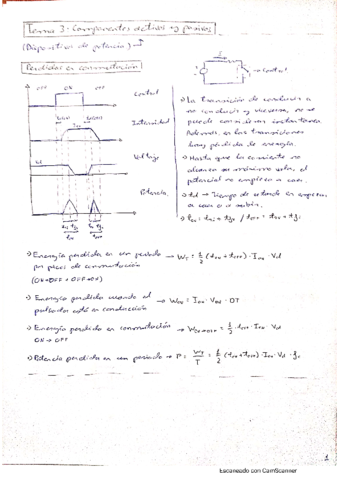 Tema 3: Componentes activos y pasivos
(Dispositivos de potencia)
Perdidas en conmutación
OFF ON OFF
Control
Intensidad
Voltaje
Potencia
I
Control
-> La transición de conducir a
no conducir y viceversa, no se
puede considerar instantánea.
Además, en las transiciones
hay perdida de energía.
-> Hasta que la corriente no
alcanza su máximo valor, el
potencial no empieza a caer.
-> td -> Tiempo de retardo en empezar
a caer o a subir.
-> Energía perdida en un periodo -> W_T = 1/2 (t_on + t_off) · I_on · Vd
por proceso de conmutación
(ON->OFF + OFF->ON)
-> Energía perdida cuando el -> W_on = I_on · V_on · DT
está en conducción
-> Energía perdida en conmutación -> W_ON->OFF = 1/2 · t_off · I_on · Vd
ON -> OFF
-> Potencia perdida en un periodo -> P = W_T/T = 1/2 (t_on + t_off) · I_on · Vd · fs
1
Escaneado con CamScanner